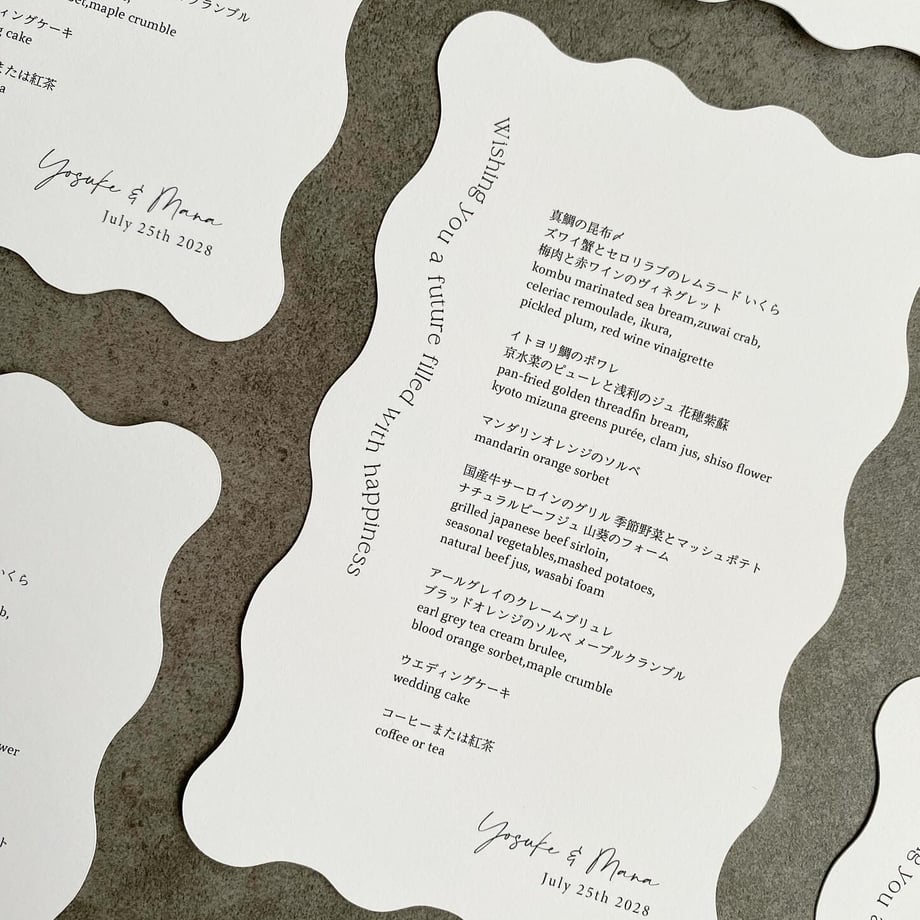 クランブル
et,maple crumble
ィングケーキ
g cake
または紅茶
a
Yosuke & Mana
July 25th 2028
Wishing you a future filled with happiness
真鯛の昆布〆
ズワイ蟹とセロリラブのレムラード いくら
梅肉と赤ワインのヴィネグレット
kombu marinated sea bream,zuwai crab,
celeriac remoulade, ikura,
pickled plum, red wine vinaigrette
イトヨリ鯛のポワレ
京水菜のピューレと浅利のジュ 花穂紫蘇
pan-fried golden threadfin bream,
kyoto mizuna greens purée, clam jus, shiso flower
マンダリンオレンジのソルベ
mandarin orange sorbet
国産牛サーロインのグリル 季節野菜とマッシュポテト
ナチュラルビーフジュ 山葵のフォーム
grilled japanese beef sirloin,
seasonal vegetables,mashed potatoes,
natural beef jus, wasabi foam
アールグレイのクレームブリュレ
ブラッドオレンジのソルベ メープルクランブル
earl grey tea cream brulee,
blood orange sorbet,maple crumble
ウエディングケーキ
wedding cake
コーヒーまたは紅茶
coffee or tea
Yosuke & Mana
July 25th 2028
いくら
b,
wer
ト
ng you a